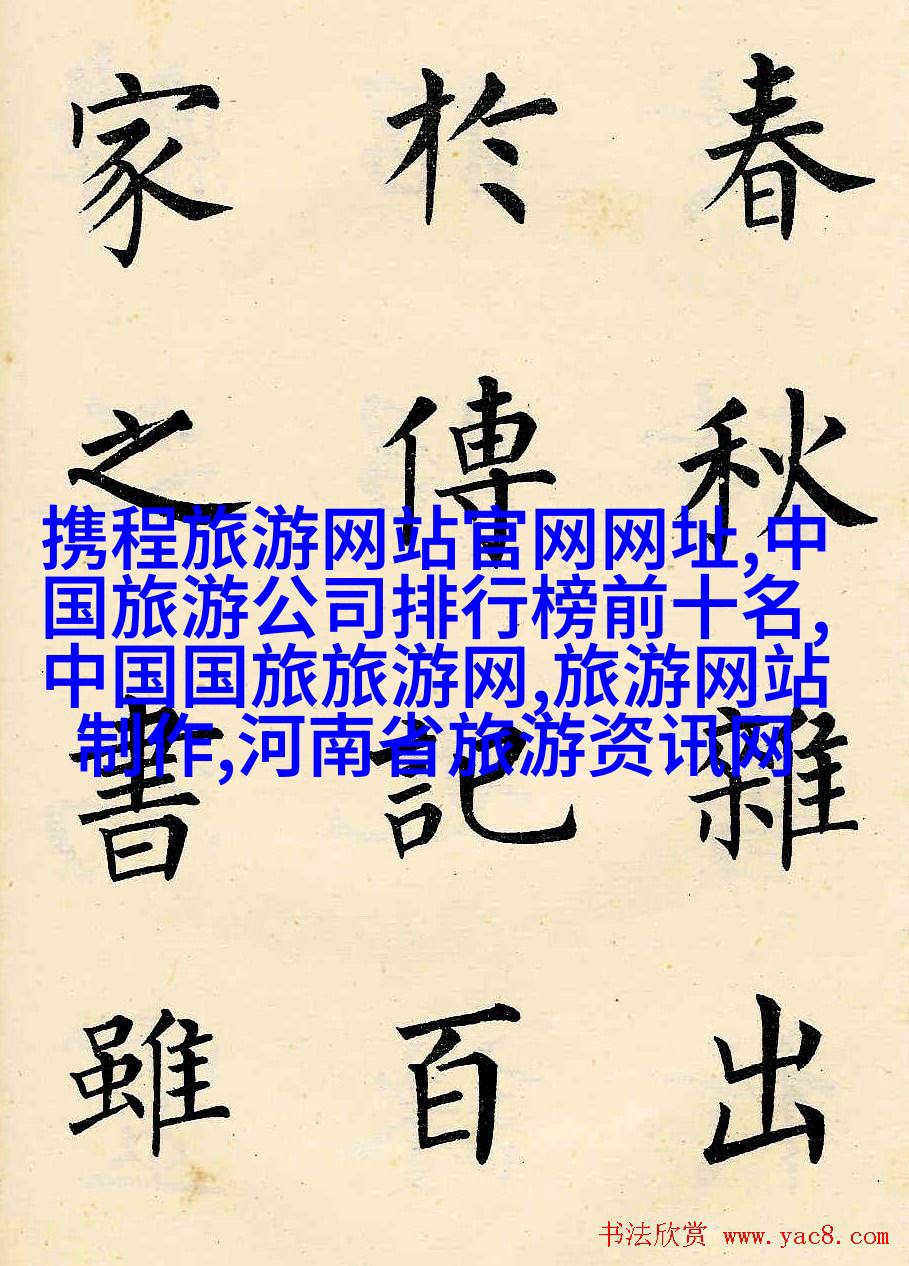 春秋雜出
於傳記百
家之書雖
携程旅游网站官网网址,中
国旅游公司排行榜前十名,
中国国旅旅游网,旅游网站
制作,河南省旅游资讯网
书法欣赏 www.yac8.com